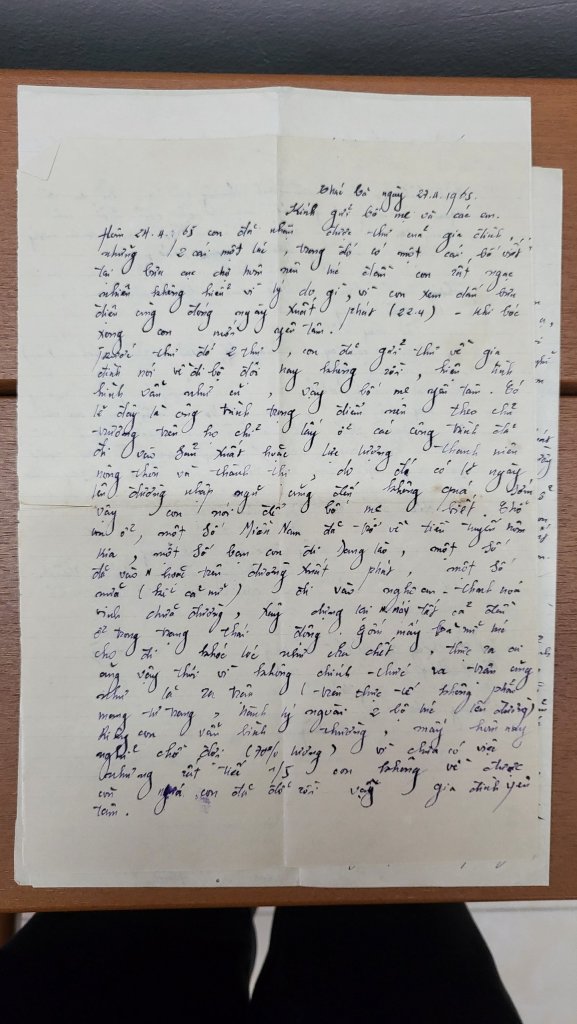 ngày 27.4.1965.
Kính gửi bố mẹ và các em.
Hôm 24.4.65 con đã nhận được thư của gia đình
những 2 cái một lúc, trong đó có một cái, bố viết
tại bưu cục chỗ hòm con rất ngạc
nhiên không hiểu vì lý do gì, vì con xem dấu bưu
điện cũng đóng ngày xuất phát (22.4) - khi bóc
xong con mới yên tâm.
Trước thư đó 2 thư, con đã gửi thư về gia
đình nói về đi bộ đội nay không rồi, hiện tình
hình vẫn như cũ, vậy bố mẹ yên tâm. Có
lẽ đây là công trình trọng điểm nên theo chủ
trương trên họ chỉ lấy ở các công trình đã
đi vào sản xuất hoặc lực lượng thanh niên
nông thôn và thành thị, do đó có lẽ ngày
lên đường nhập ngũ cũng đến không quá sớm
vậy con nói để bố mẹ biết. Chỗ
con ở, một số Miền Nam đã trở về tiền tuyến hôm
kia, một số bạn con đi sang Lào, một số
đã vào hoặc trên đường xuất phát, một số
nữa (kể cả nữ) đi vào nghệ an - thanh hoá
vinh chữa đường, xây dựng lại máy tất cả đều
ở trong trạng thái động. Gớm mấy bà nữ mẹ
cho đi khóc lóc như cha chết, thực ra ai
cũng vậy thôi vì không chính thức ra trận cũng
như là ra trận (trên thực tế không phải
mang tư trang, hành lý người 2 bộ lên đường)
Riêng con vẫn bình thường, mấy hôm nay
nghỉ chờ (70% lương) vì chưa có việc
nhưng rất tiếc 1/5 con không về được
con đã rồi vậy gia đình yên
tâm.